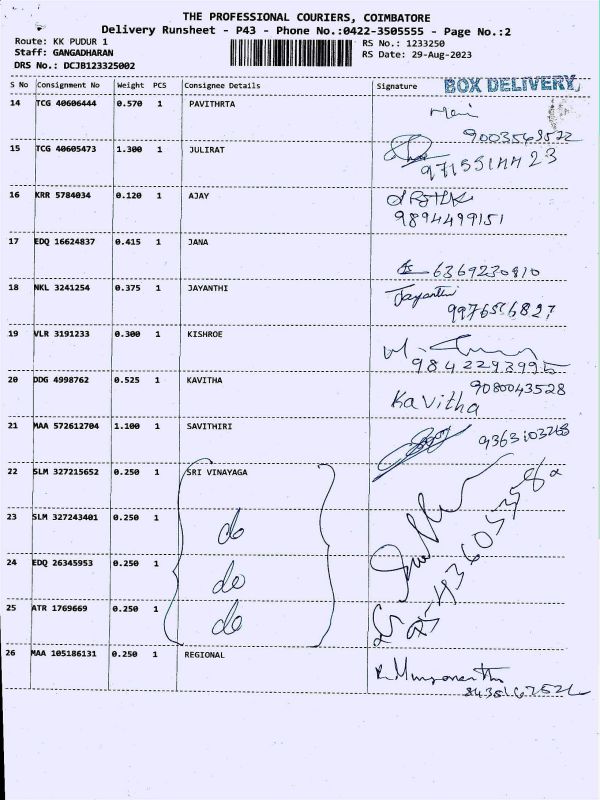 THE PROFESSIONAL COURIERS, COIMBATORE
Delivery Runsheet - P43 - Phone No.:0422-3505555 - Page No.:2
Route: KK PUDUR 1
Staff: GANGADHARAN
DRS No.: DCJB123325002
RS No.: 1233250
RS Date: 29-Aug-2023
S No Consignment No Weight PCS Consignee Details Signature BOX DELIVERY
14 TCG 40606444 0.570 1 PAVITHRTA
9003569522
15 TCG 40605473 1.300 1 JULIRAT
16 KRR 5784034 0.120 1 AJAY
9894499151
17 EDQ 16624837 0.415 1 JANA
6369230810
18 NKL 3241254 0.375 1 JAYANTHI Jayanthi
9976516827
19 VLR 3191233 0.300 1 KISHROE
9842293995
20 DDG 4998762 0.525 1 KAVITHA 9080043528
Kavitha
21 MAA 572612704 1.100 1 SAVITHIRI 9363103268
22 SLM 327215652 0.250 1 SRI VINAYAGA
23 SLM 327243401 0.250 1 do
24 EDQ 26345953 0.250 1 do
25 ATR 1769669 0.250 1 do
26 MAA 105186131 0.250 1 REGIONAL